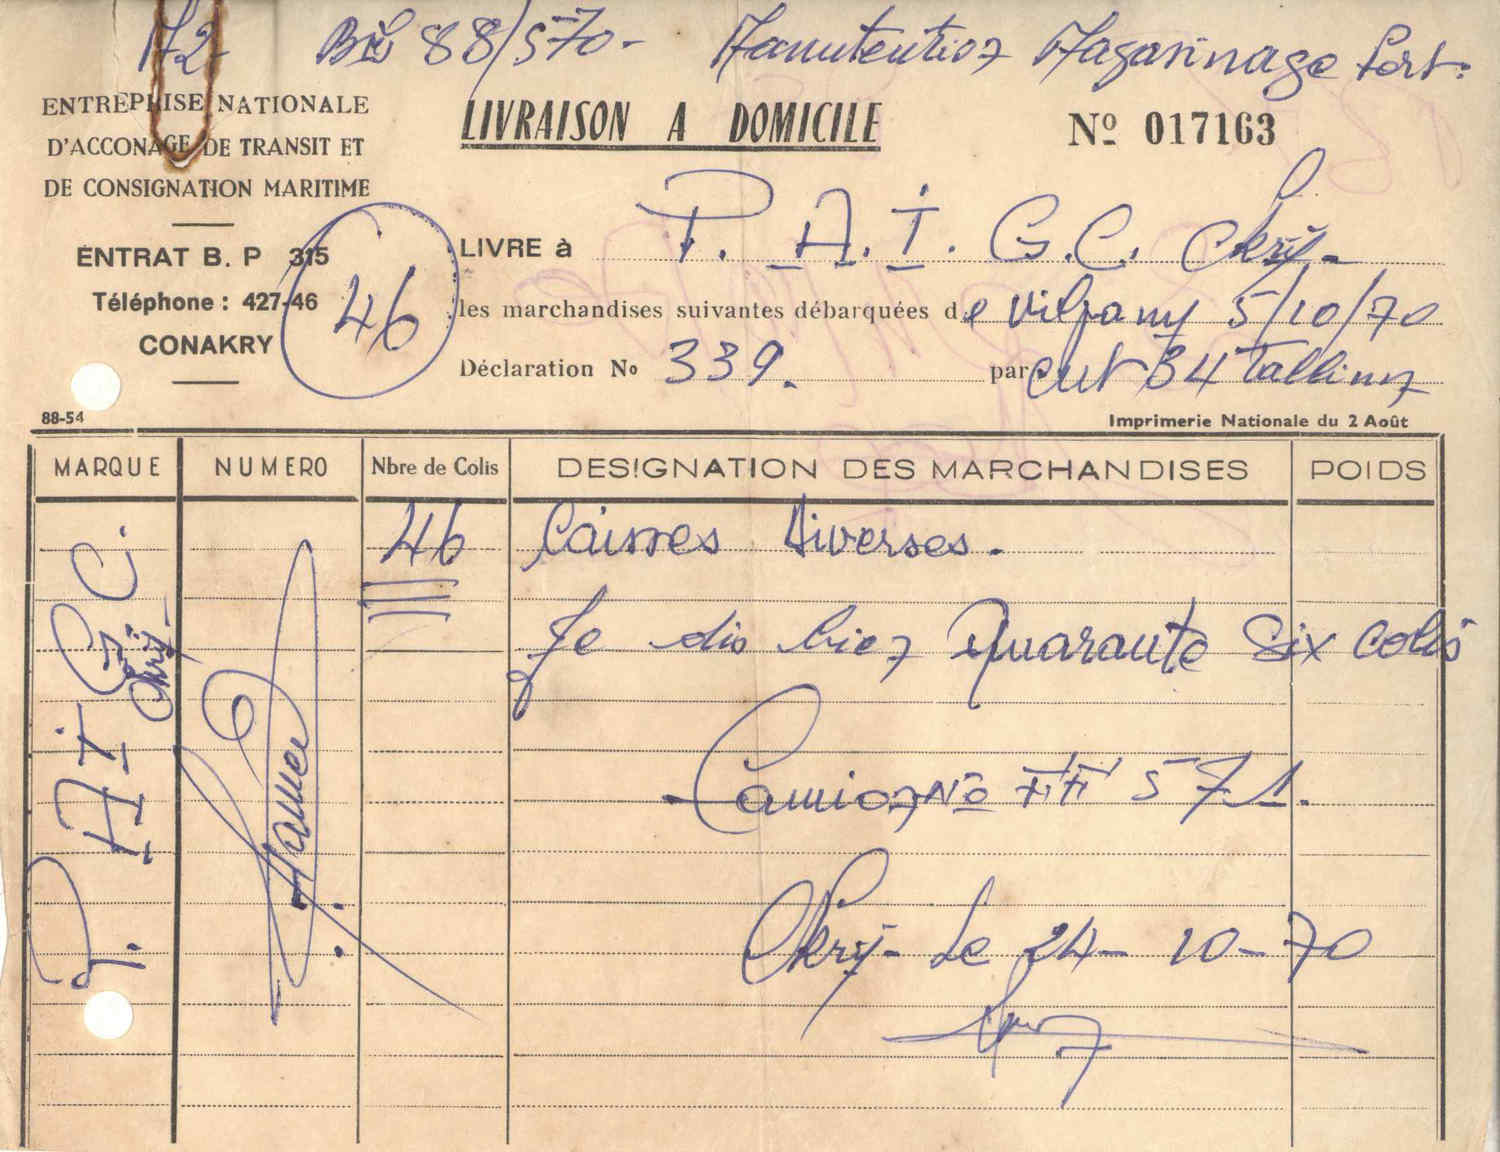 72 Bis 88/570- Manutention Magasinage Port.
ENTREPRISE NATIONALE
D'ACCONAGE DE TRANSIT ET
DE CONSIGNATION MARITIME
ENTRAT B. P 315
Téléphone : 427-46
CONAKRY
46
LIVRAISON A DOMICILE
Nº 017163
LIVRE à P. A. I. G. C. Ckry-
les marchandises suivantes débarquées de Vilpany 5/10/70
Déclaration No 339. par cut 34 Tallinn
88-54
Imprimerie Nationale du 2 Août
MARQUE NUMERO Nbre de Colis DESIGNATION DES MARCHANDISES POIDS
P. AIGC. Ckry-
46 Caisses Diverses.
Je dis bien Quarante Six Colis
Camion No 571.
Ckry- Le 24-10-70